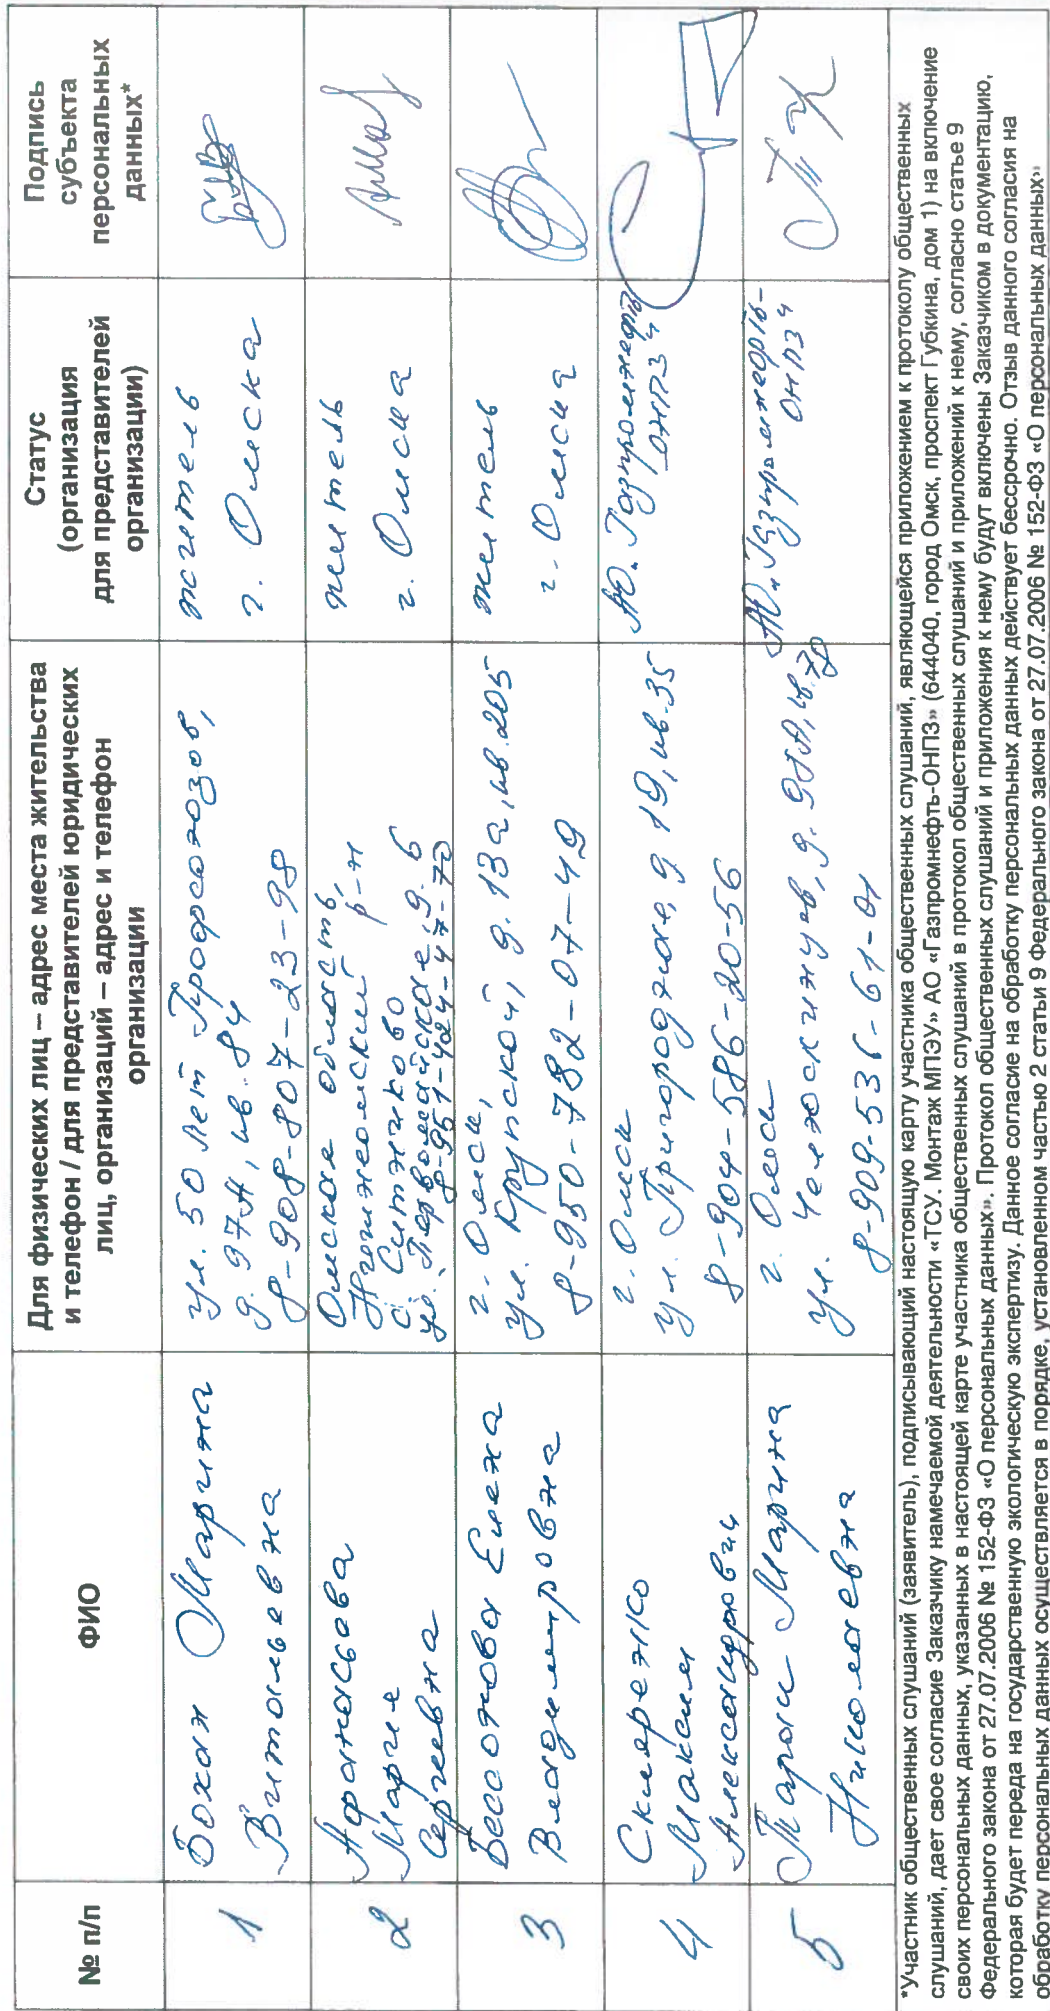 № п/п
ФИО
Для физических лиц – адрес места жительства
и телефон / для представителей юридических
лиц, организаций – адрес и телефон
организации
Статус
(организация
для представителей
организации)
Подпись
субъекта
персональных
данных*
1
Бохан Марина
Витальевна
ул. 50 лет Профсоюзов,
д. 97А, кв. 84
8-908-807-23-98
житель
г. Омска
2
Афанасьева
Мария
Сергеевна
Омская область,
Нижнеомский р-н
с. Ситниково
ул. Первомайская, д. 6
8-951-424-47-70
житель
г. Омска
3
Бессонова Елена
Владимировна
г. Омск,
ул. Крупской, д. 13а, кв. 205
8-950-782-07-49
житель
г. Омска
4
Скляренко
Максим
Александрович
г. Омск
ул. Пригородная, д 19, кв. 35
8-904-586-20-56
АО "Газпромнефть
ОНПЗ"
5
Таран Марина
Николаевна
г. Омск
ул. Челюскинцев, д. 98А, кв. 70
8-909-536-61-01
АО "Газпромнефть-
ОНПЗ"
*Участник общественных слушаний (заявитель), подписывающий настоящую карту участника общественных слушаний, являющейся приложением к протоколу общественных
слушаний, дает свое согласие Заказчику намечаемой деятельности «ТСУ. Монтаж МПЭУ» АО «Газпромнефть-ОНПЗ» (644040, город Омск, проспект Губкина, дом 1) на включение
своих персональных данных, указанных в настоящей карте участника общественных слушаний в протокол общественных слушаний и приложений к нему, согласно статье 9
Федерального закона от 27.07.2006 № 152-ФЗ «О персональных данных». Протокол общественных слушаний и приложения к нему будут включены Заказчиком в документацию,
которая будет переда на государственную экологическую экспертизу. Данное согласие на обработку персональных данных действует бессрочно. Отзыв данного согласия на
обработку персональных данных осуществляется в порядке, установленном частью 2 статьи 9 Федерального закона от 27.07.2006 № 152-ФЗ «О персональных данных»